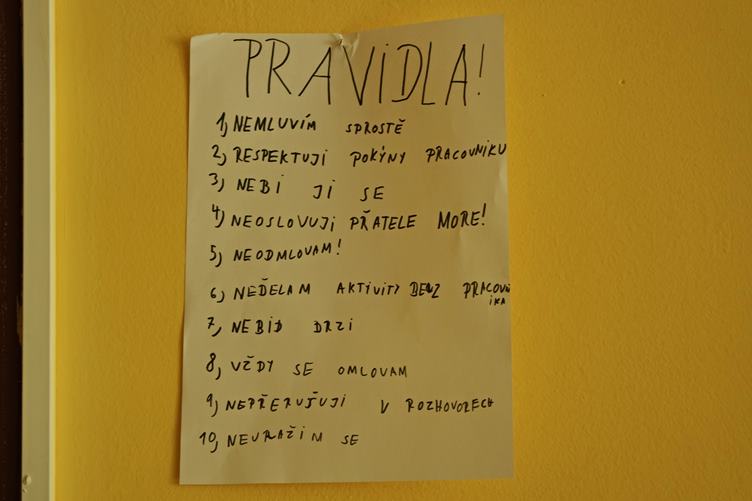 PRAVIDLA!
1, NEMLUVÍM SPROSTĚ
2, RESPEKTUJI POKÝNY PRACOVNIKU
3, NEBI JI SE
4, NEOSLOVUJI PŘATELE MORE!
5, NEODMLOVAM!
6, NEDĚLAM AKTIVITY BENZ PRACOVN
IKA
7, NEBÍD DRZI
8, VŽDY SE OMLOVAM
9, NEPŘERUŠUJI V ROZHOVORECH
10, NEURAŽIM SE